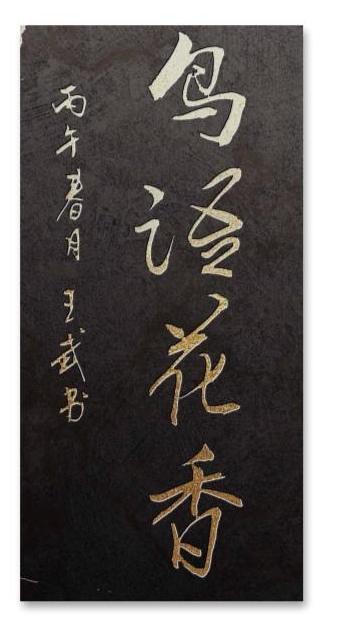 鸟语花香
丙午春月 王武书